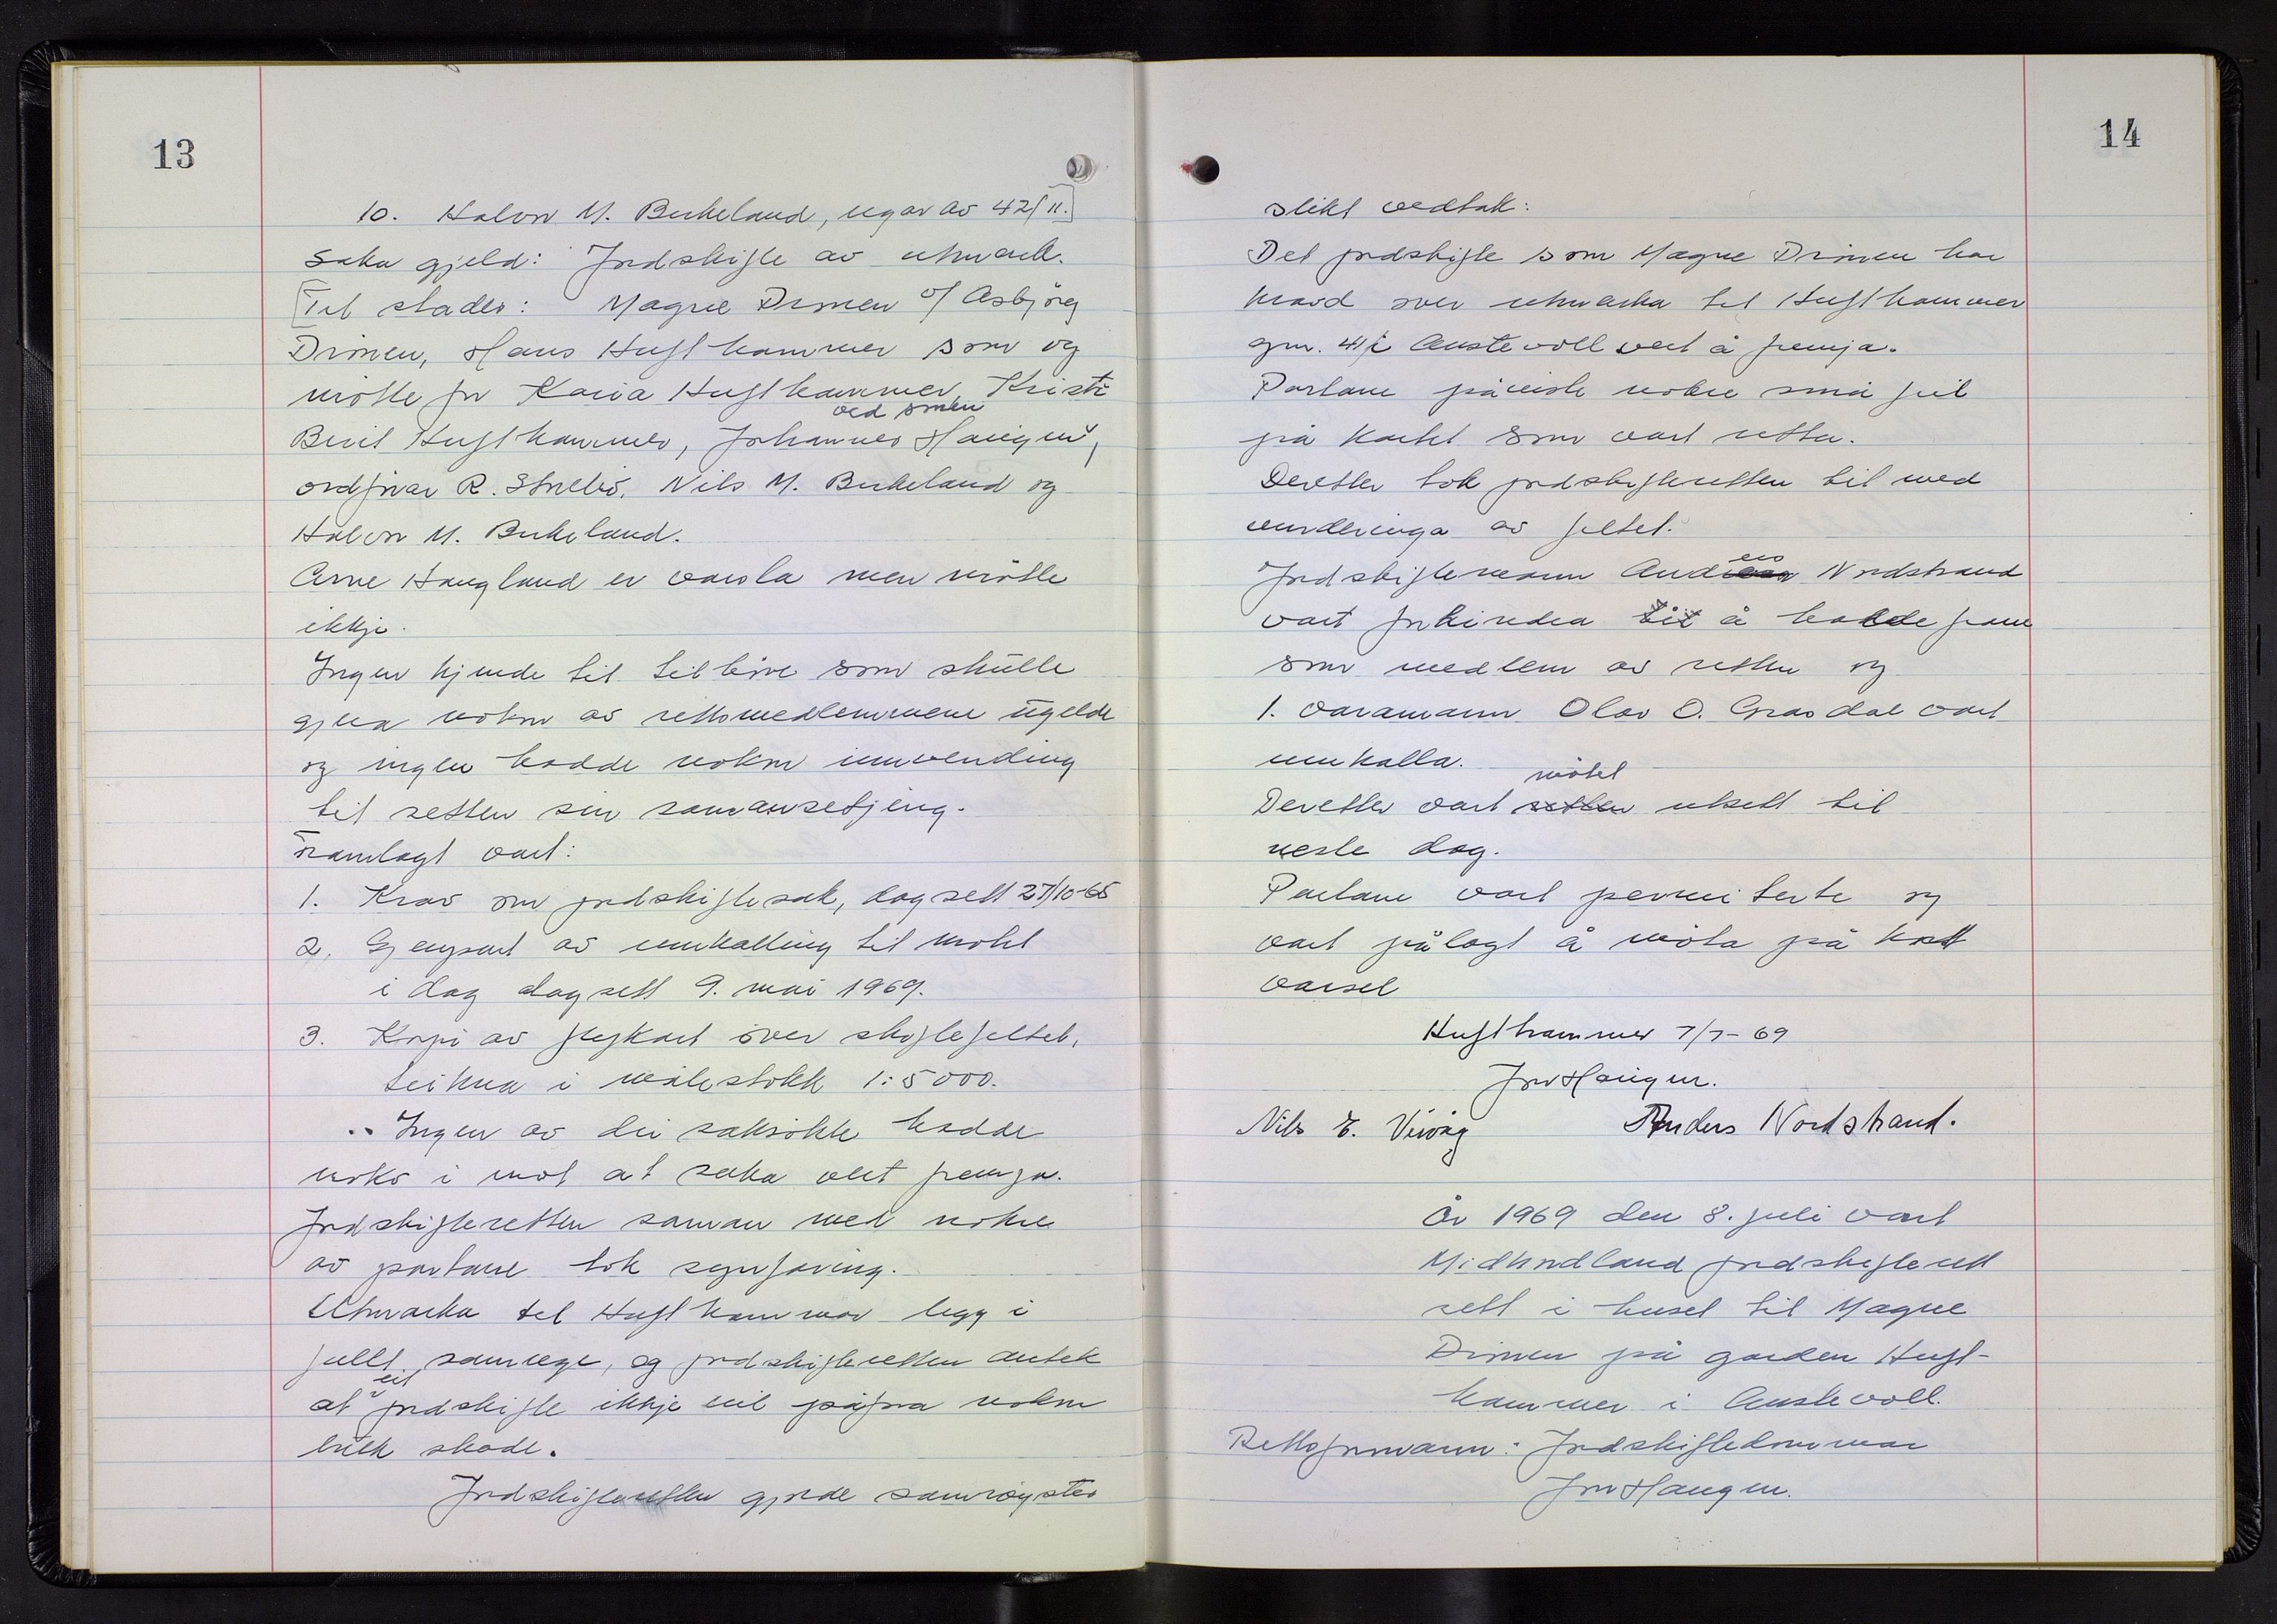 13
10. Halvor M. Birkeland, eigar av 42/11.
Saka gjeld: Jordskifte av utmark.
Til stades: Magne Drinen o/ Asbjörg
Drinen, Hans Hufthammer som og
mötte for Karia Hufthammer, Kristi
Beril Hufthammer, Johannes Haugen,
ved sonen
ordförar R. Strebö, Nils M. Birkeland og
Halvor M. Birkeland.
Arne Haugland er varsla men mötte
ikkje.
Ingen kjende til tilhöve som skulle
gjera nokon av rettsmedlemmene ugilde
og ingen hadde nokon innvending
til retten sin samansetjing.
Framlagt vart:
1. Krav om jordskiftesak, dagsett 27/10-65
2. Gjenpart av innkalling til mötet
i dag dagsett 9. mai 1969.
3. Kopi av flykart över skiftefeltet,
teikna i målestokk 1:5000.
Ingen av dei saksökte hadde
noko i mot at saka vert fremja.
Jordskifteretten saman med nokre
av partane tok synfaring.
Utmarka til Hufthammar ligg i
fullt sameige, og jordskifteretten antek
at eit jordskifte ikkje vil påföra nokon
bruk skade.
Jordskifteretten gjorde samröystes
14
slikt vedtak:
Det jordskifte som Magne Drinen har
kravd over utmarka til Hufthammer
gnr. 41 i Austevoll vert å fremja.
Partane påviste nokre små feil
på kartet som vart retta.
Deretter tok jordskifteretten til med
vurderinga av feltet.
Jordskiftemann Anders Nordstrand
vart forhindra til å halde fram
som medlem av retten og
1. varamann Olav O. Grasdal vart
innkalla.
Deretter vart retten mötet utsett til
neste dag.
Partane vart permiterte og
vart pålagt å möta på kort
varsel
Hufthammer 7/7-69
Jon Haugen.
Nils E. Vivåg Anders Nordstrand.
År 1969 den 8. juli vart
Midhordland jordskifterett
sett i huset til Magne
Drinen på garden Huft-
hammer i Austevoll.
Rettsformann: Jordskiftedommar
Jon Haugen.